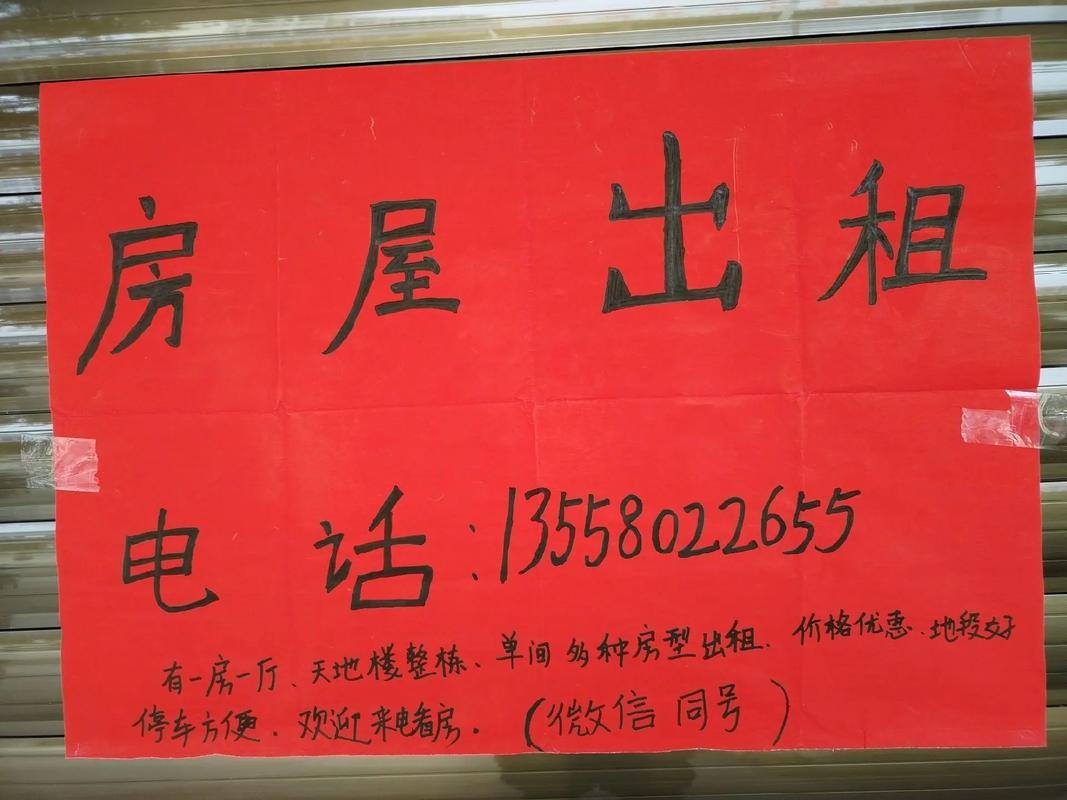 房屋出租
电话:13558022655
有一房一厅、天地楼整栋、单间多种房型出租.价格优惠.地段好
停车方便.欢迎来电看房.(微信同号)